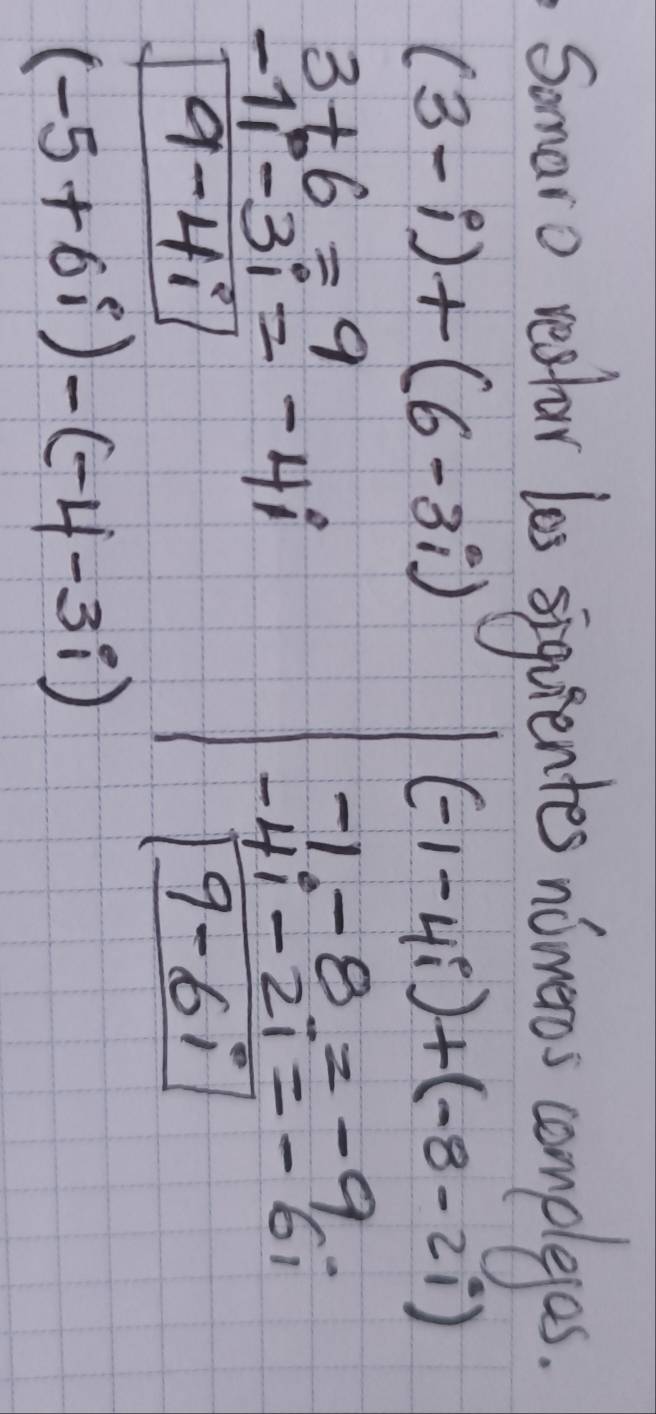 Sumar o restar los siguientes números complejos.
(3-i)+(6-3i)
3+6=9
-1i-3i=-4i
9-4i
(-1-4i)+(-8-2i)
-1-8=-9
-4i-2i=-6i
9-6i
(-5+6i)-(-4-3i)